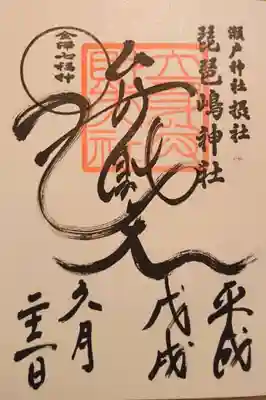 瀬戸神社 摂社
琵琶嶋神社
弁財天
金澤七福神
平成
戊戌
九月
二十三日